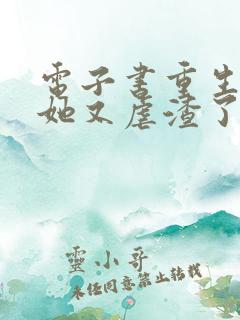 電子書重生
她又虐渣了
靈小哥
未經同意禁止轉載